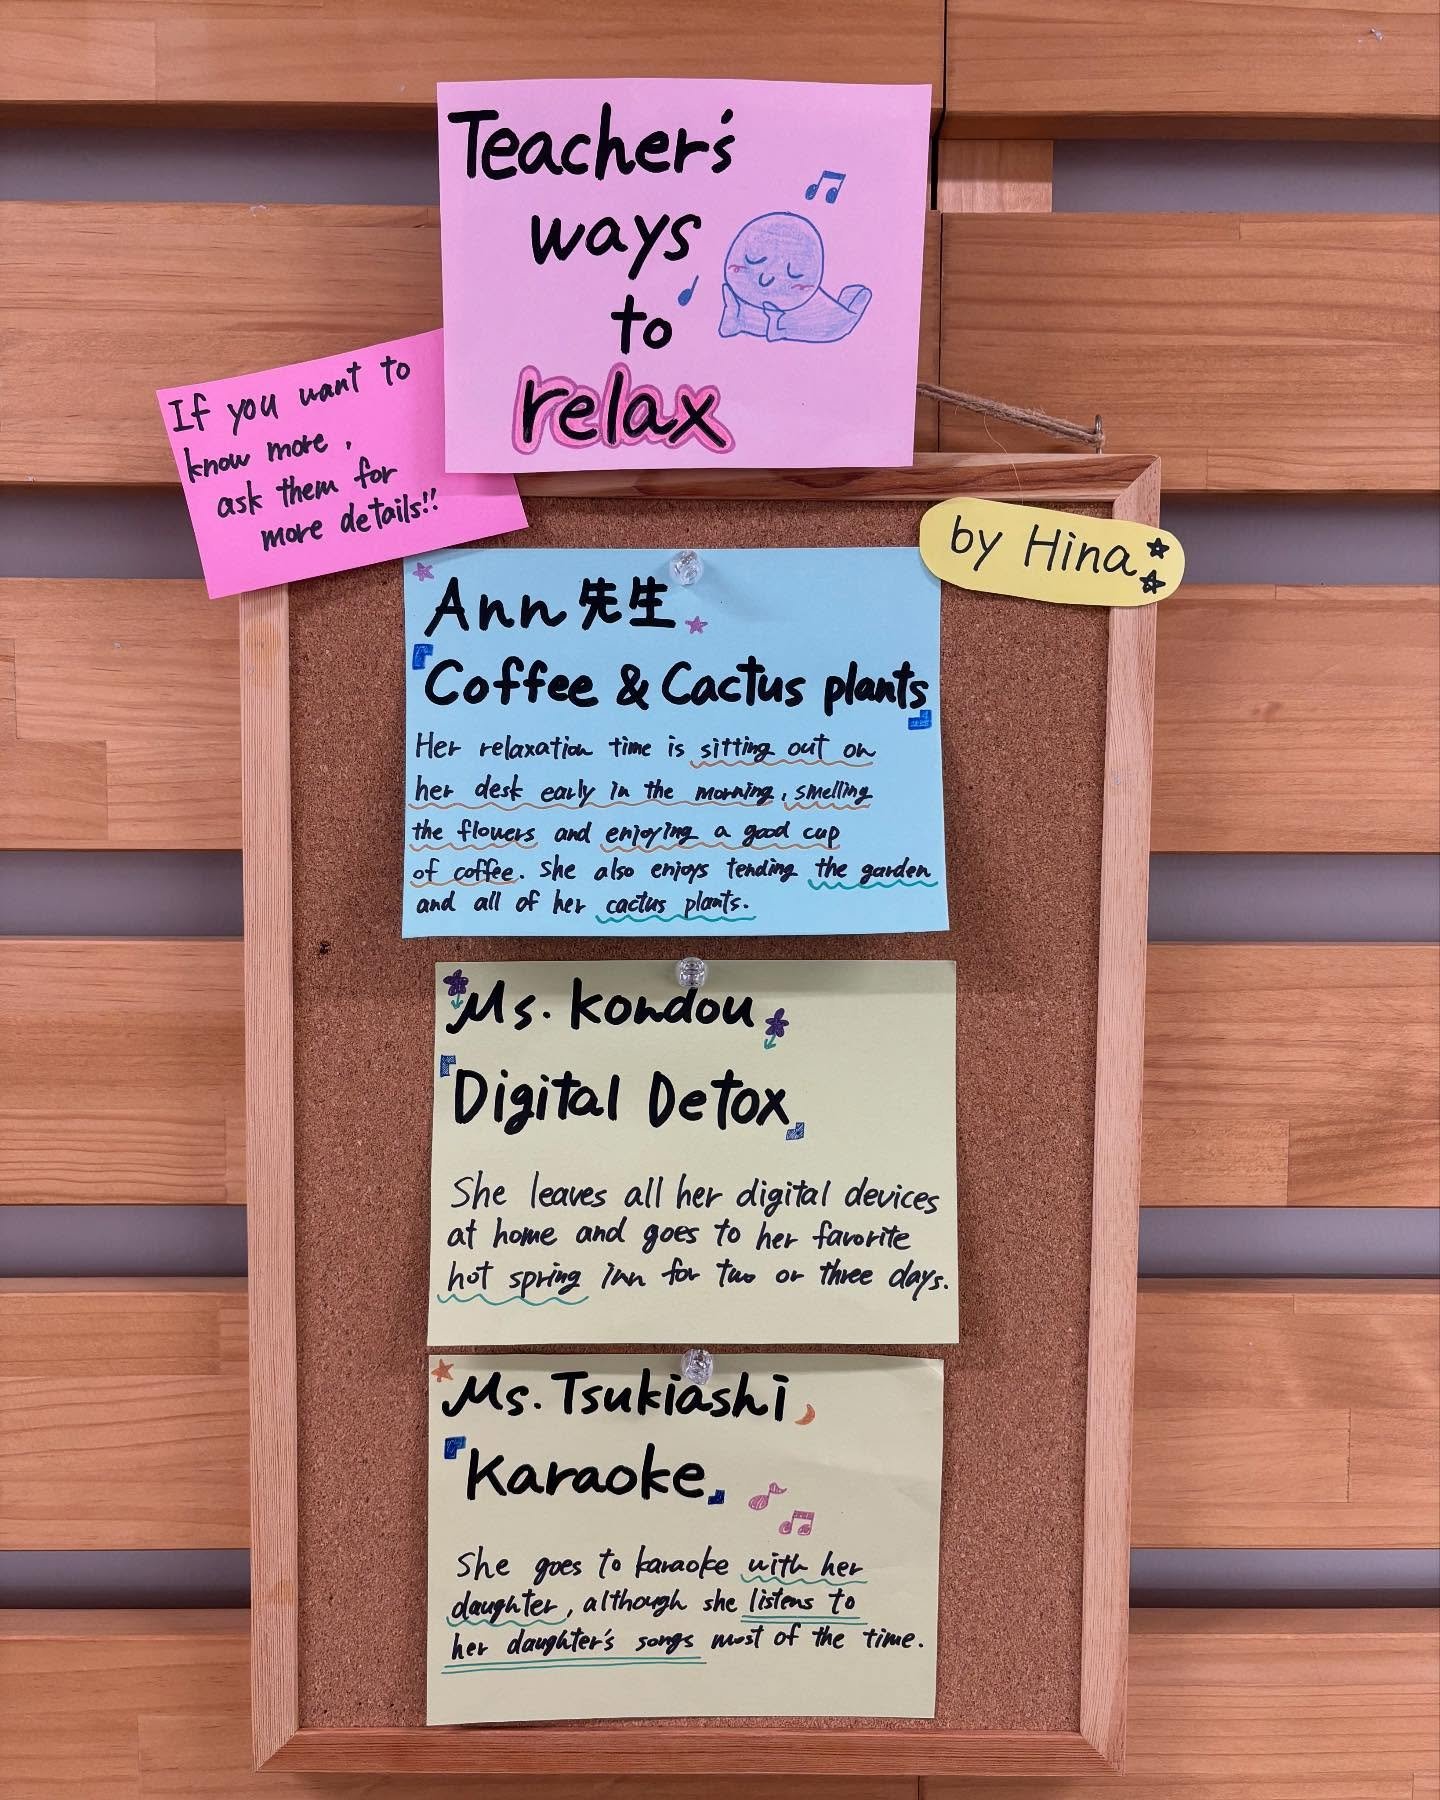 Teacher's
ways
to
relax
If you want to
know more,
ask them for
more details!!
by Hina
Ann先生
『Coffee & Cactus plants』
Her relaxation time is sitting out on
her desk early in the morning, smelling
the flowers and enjoying a good cup
of coffee. She also enjoys tending the garden
and all of her cactus plants.
Ms. Kondou
『Digital Detox』
She leaves all her digital devices
at home and goes to her favorite
hot spring inn for two or three days.
Ms. Tsukiashi
『Karaoke』
She goes to karaoke with her
daughter, although she listens to
her daughter's songs most of the time.